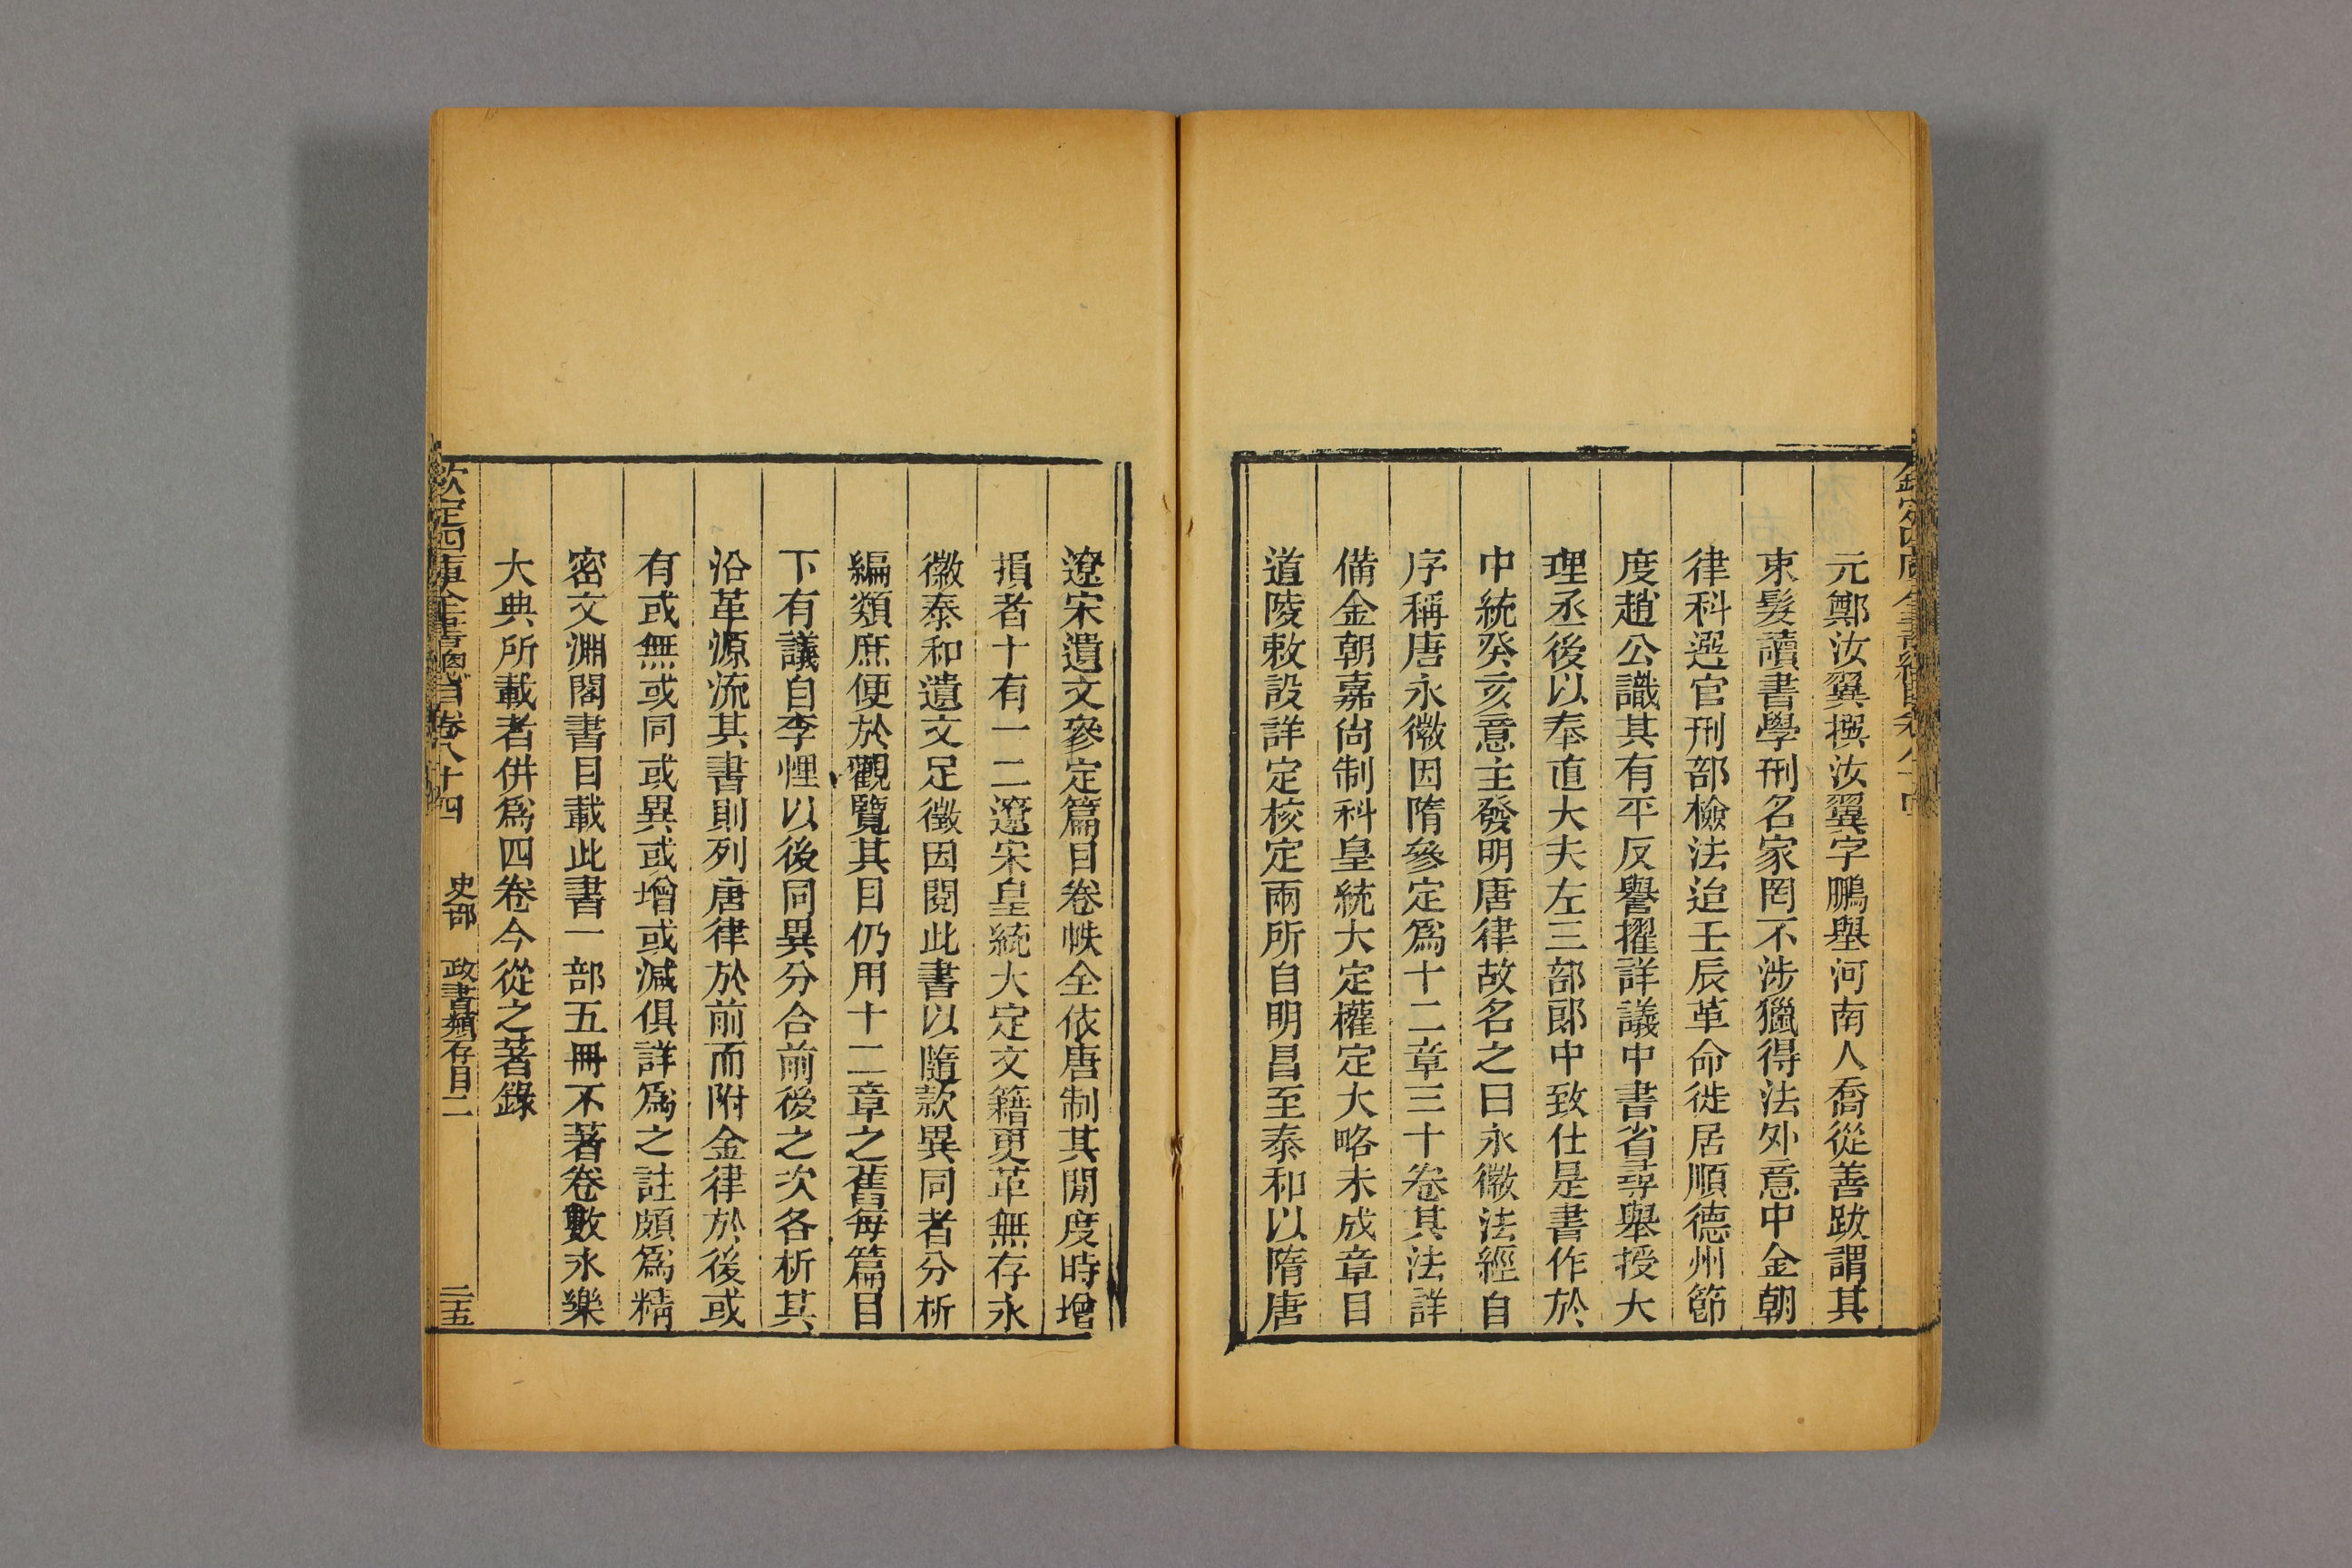 元鄭汝翼撰汝翼字鵬舉河南人喬從善跋謂其
束髮讀書學刑名家罔不涉獵得法外意中金朝
律科選官刑部檢法迨壬辰革命徙居順德州節
度趙公識其有平反譽擢詳議中書省尋舉授大
理丞後以奉直大夫左三部郎中致仕是書作於
中統癸亥意主發明唐律故名之曰永徽法經自
序稱唐永徽因隋參定爲十二章三十卷其法詳
備金朝嘉尚制科皇統大定權定大略未成章目
道陵敕設詳定校定兩所自明昌至泰和以隋唐
遼宋遺文參定篇目卷帙全依唐制其閒度時增
損者十有一二遼宋皇統大定文籍更革無存永
徽泰和遺文足徵因閱此書以隨款異同者分析
編類庶便於觀覽其目仍用十二章之舊每篇目
下有議自李悝以後同異分合前後之次各析其
沿革源流其書則列唐律於前而附金律於後或
有或無或同或異或增或減俱詳爲之註頗爲精
密文淵閣書目載此書一部五冊不著卷數永樂
大典所載者併爲四卷今從之著錄
欽定四庫全書總目卷八十四 史部 政書類存目二 三五